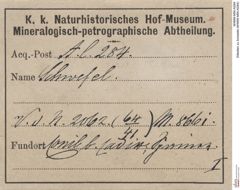 K. k. Naturhistorisches Hof-Museum.
Mineralogisch-petrographische Abtheilung.
Acq.-Post A. l. 284.
Name Schwefel.
V. d. N. 2062. (64/41.) M. 8661.
Fundort Conil b. Cadix,
I